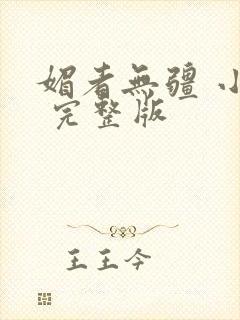 媚者無疆 小
完整版
王王今